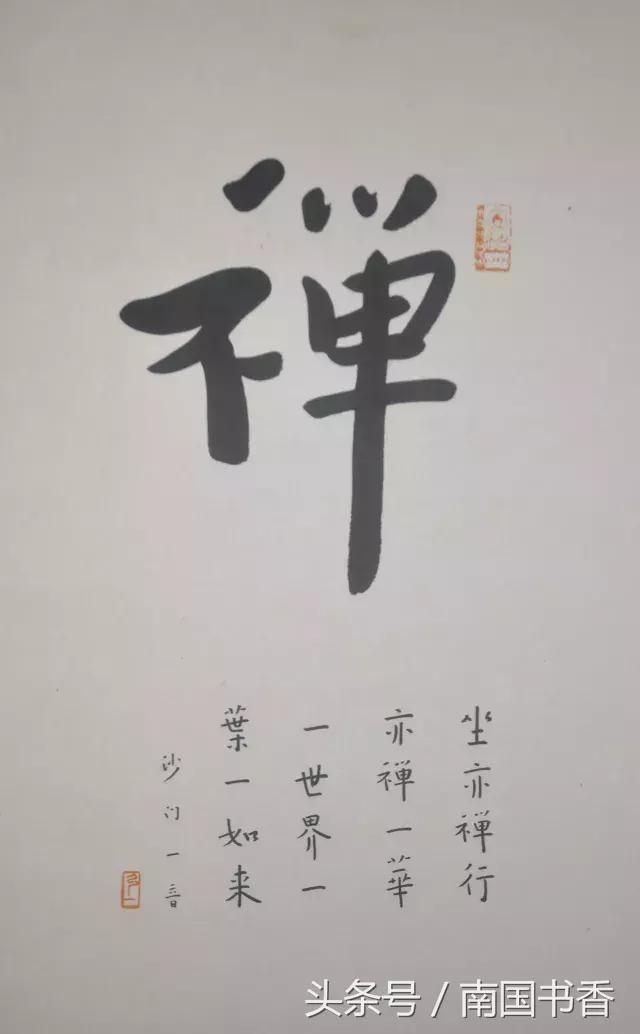 禅
坐亦禅行
亦禅一華
一世界一
葉一如来
沙门一音
头条号 / 南国书香